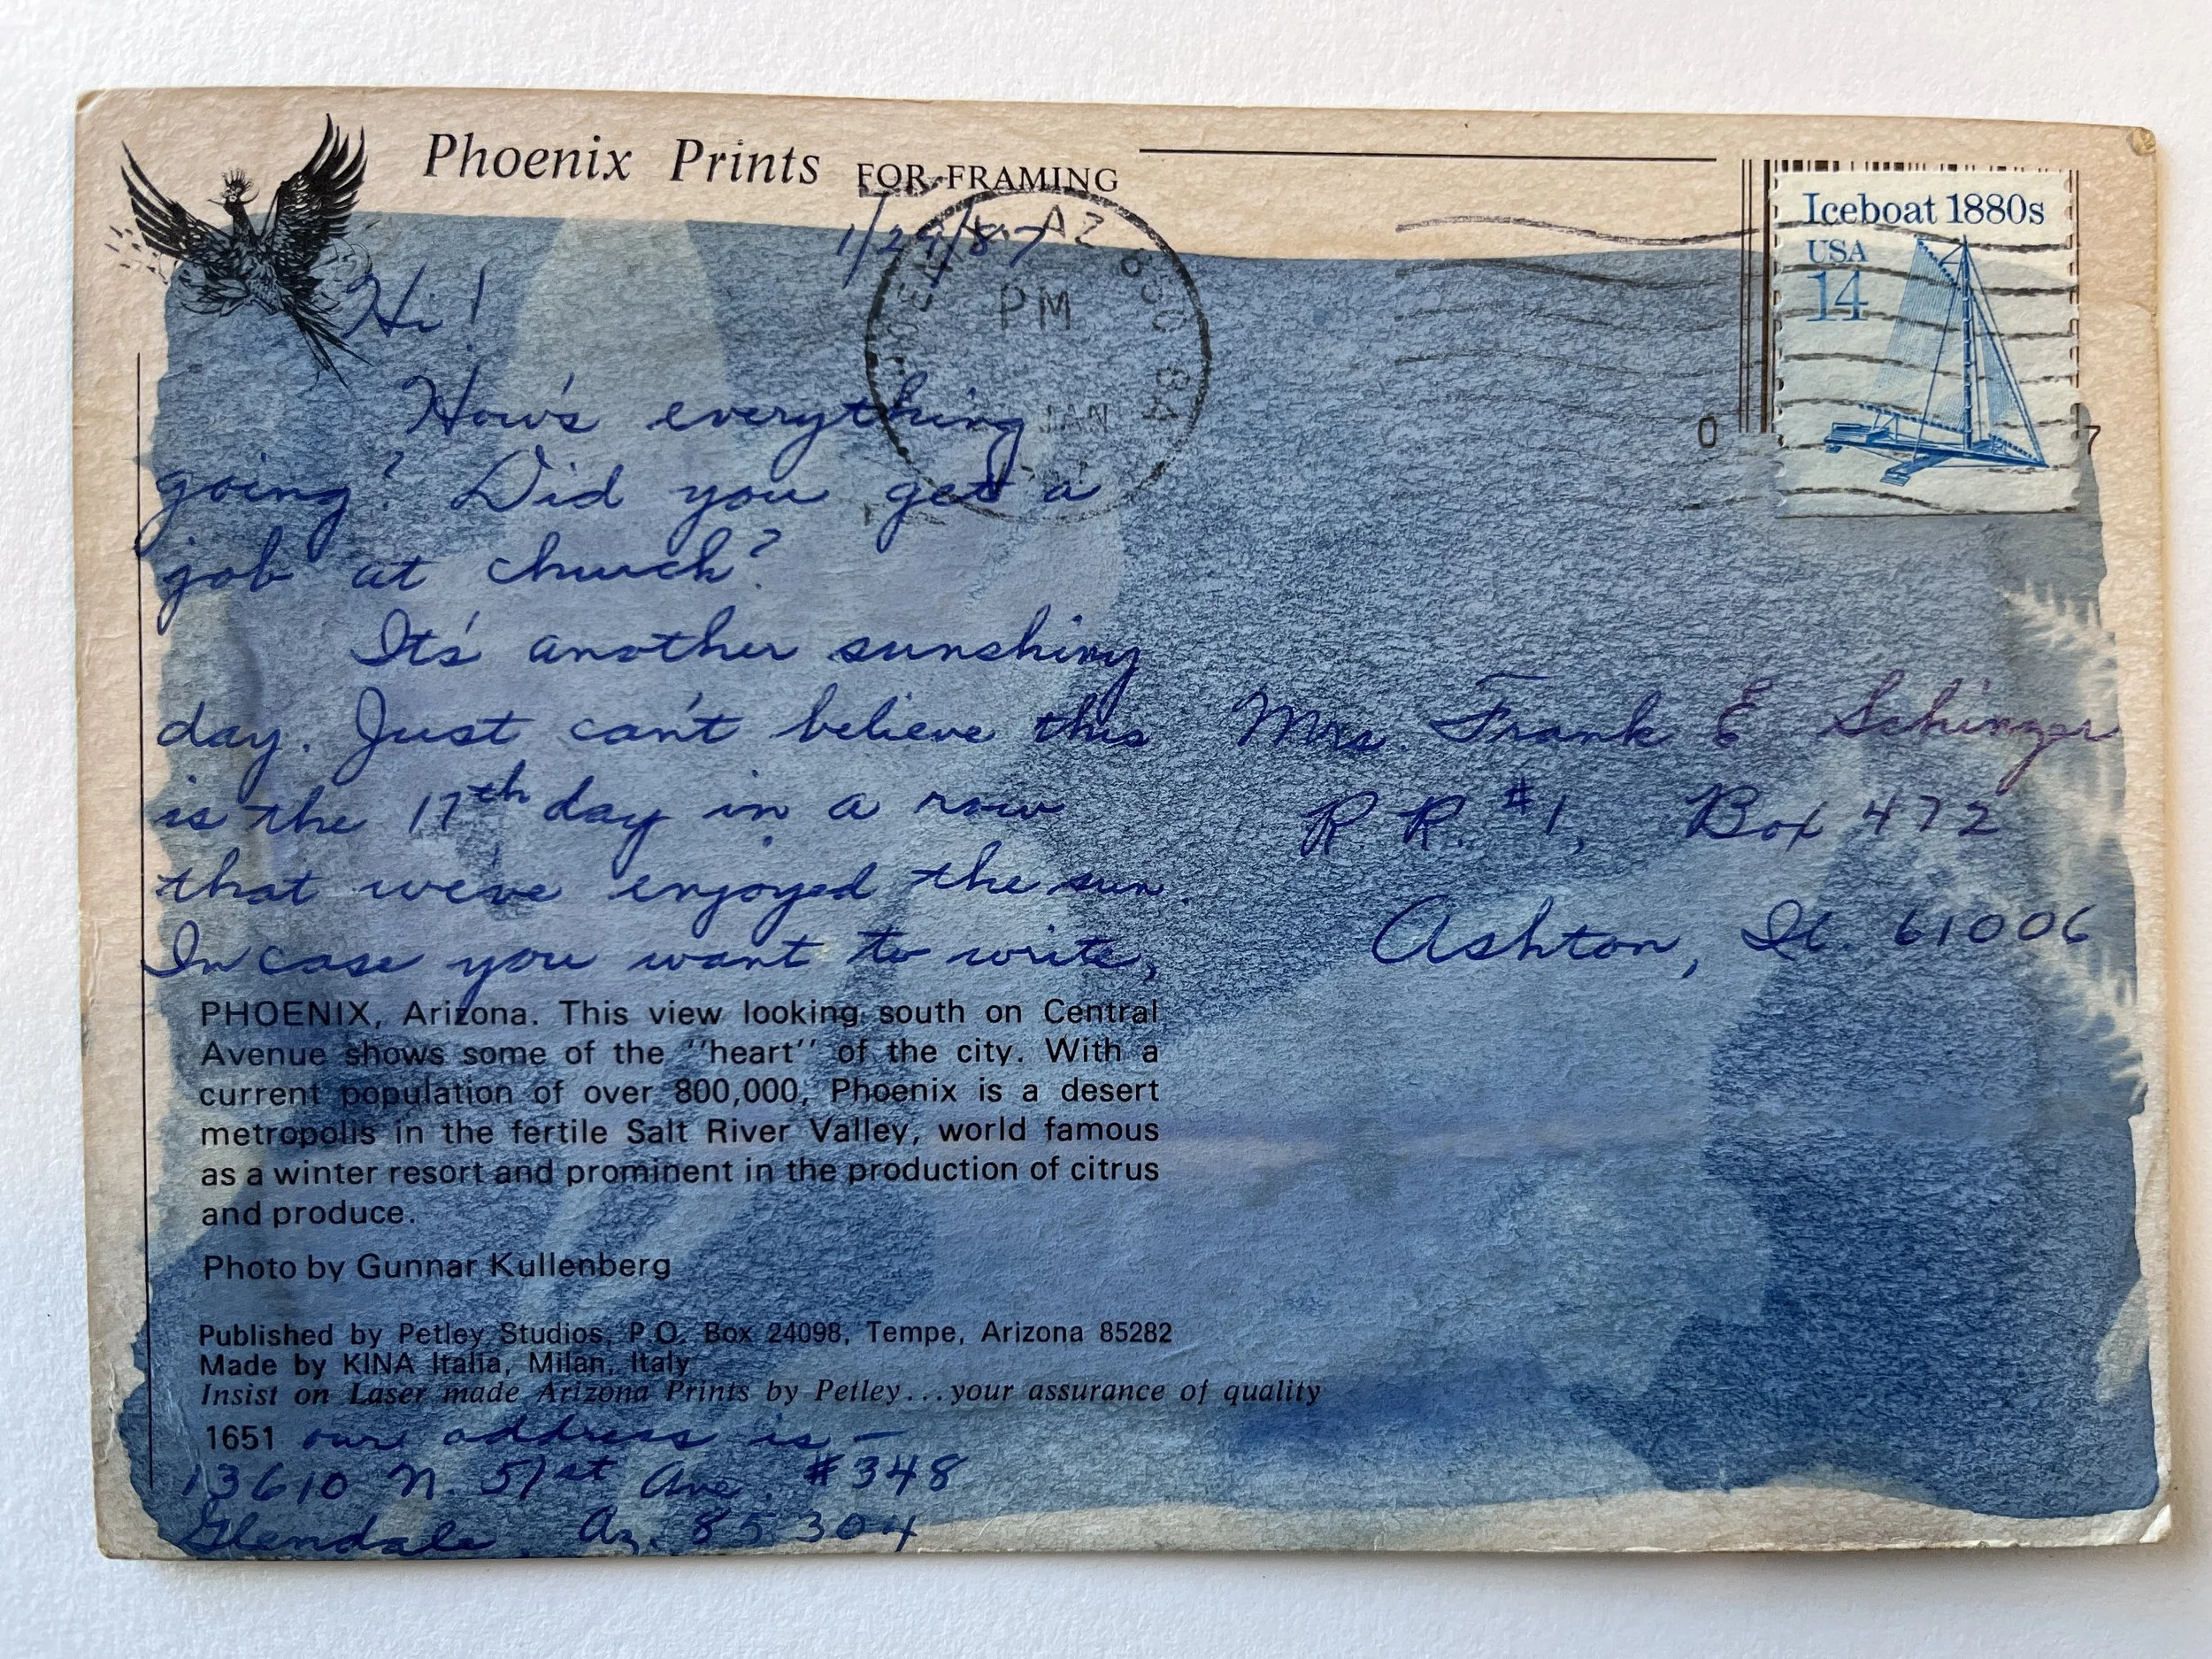 Phoenix Prints FOR FRAMING
1/29/87
AZ
PM
JAN
Iceboat 1880s
USA
14
0
7
Hi!
How's everything
going? Did you get a
job at church?
It's another sunshiny
day. Just can't believe this
is the 17th day in a row
that we've enjoyed the sun.
In case you want to write,
Mrs. Frank E Schinzer
R. R. #1, Box 472
Ashton, Il. 61006
PHOENIX, Arizona. This view looking south on Central
Avenue shows some of the "heart" of the city. With a
current population of over 800,000, Phoenix is a desert
metropolis in the fertile Salt River Valley, world famous
as a winter resort and prominent in the production of citrus
and produce.
Photo by Gunnar Kullenberg
Published by Petley Studios, P.O. Box 24098, Tempe, Arizona 85282
Made by KINA Italia, Milan, Italy
Insist on Laser made Arizona Prints by Petley...your assurance of quality
1651 our address is -
13610 N. 51st Ave. #348
Glendale, Az. 85304